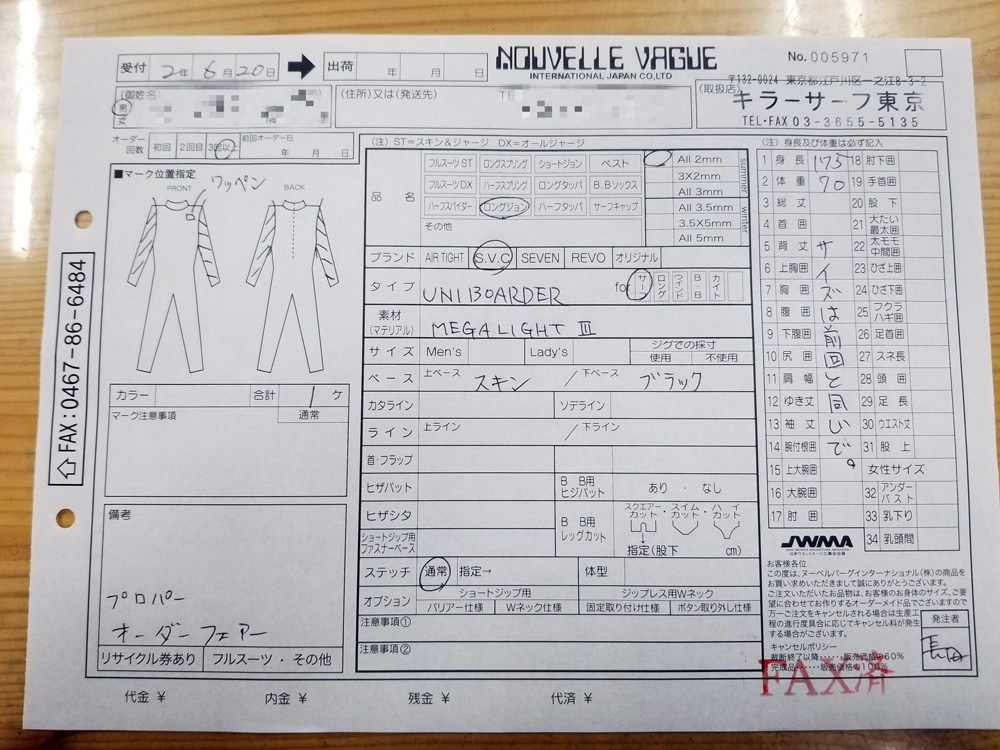 受付 2年 6月 20日 出荷 年 月 日
NOUVELLE VAGUE
INTERNATIONAL JAPAN CO.,LTD
No. 005971
男
(住所)又は(発送先)
(取扱店)
〒132-0024 東京都江戸川区一之江8-3-2
キラーサーフ東京
TEL・FAX 03-3655-5135
オーダー回数 初回 2回目 3回以上 前回オーダー日 年 月 日
■マーク位置指定
ワッペン
FRONT BACK
カラー 合計 1 ケ
マーク注意事項 通常
備考
プロパー
オーダーフェアー
リサイクル券あり フルスーツ・その他
⇧FAX:0467-86-6484
(注) ST=スキン&ジャージ DX=オールジャージ
品名
フルスーツST ロングスプリング ショートジョン ベスト
フルスーツDX ハーフスプリング ロングタッパ B.Bソックス
ハーフスパイダー ロングジョン ハーフタッパ サーフキャップ
その他
All 2mm
3X2mm
All 3mm
All 3.5mm
3.5X5mm
All 5mm
summer
winter
ブランド AIR TIGHT S.V.C SEVEN REVO オリジナル
タイプ UNIBOARDER for サーフ ロング ウインド BB カイト
素材(マテリアル) MEGALIGHT III
サイズ Men's Lady's ジグでの採寸 使用 不使用
ベース 上ベース スキン /下ベース ブラック
カタライン ソデライン
ライン 上ライン /下ライン
首・フラップ
ヒザパット B B用ヒジパット あり・なし
ヒザシタ
ショートジップ用ファスナーベース
B B用レッグカット スクエアーカット・スイムカット・ハイカット
指定(股下 cm)
ステッチ 通常 指定→ 体型
オプション ショートジップ用 ジップレス用Wネック
バリアー仕様 Wネック仕様 固定取り付け仕様 ボタン取り外し仕様
注意事項①
注意事項②
(注) 身長及び体重は必ず記入
1 身長 175 18 肘下囲
2 体重 70 19 手首囲
3 総丈 20 股下
4 首囲 21 大たい最太囲
5 背丈 22 太モモ中間囲
6 上胸囲 23 ひざ上囲
7 胸囲 24 ひざ下囲
8 腹囲 25 フクラハギ囲
9 下腹囲 26 足首囲
10 尻囲 27 スネ長
11 肩幅 28 頭囲
12 ゆき丈 29 足長
13 袖丈 30 ウエスト丈
14 腕付根囲 31 股上
15 上大腕囲 女性サイズ
16 大腕囲 32 アンダーバスト
17 肘囲 33 乳下り
34 乳頭間
サイズは前回と同いで。
JWMA
お客様各位
この度は、ヌーベルバーグインターナショナル(株)の商品を
お買い求めいただきまして誠にありがとうございます。
ご注文いただいたお品物は、お客様のお身体のサイズ、ご要
望に合わせてお作りするオーダーメイド品でございますので
万一ご注文をキャンセルされる場合は生産工
程の進行度具合に応じてキャンセル料が発生
する場合がございます。
キャンセルポリシー
裁断終了以降……販売価格の60%
完成品……販売価格の100%
発注者
長田
FAX済
代金 ¥ 内金 ¥ 残金 ¥ 代済 ¥